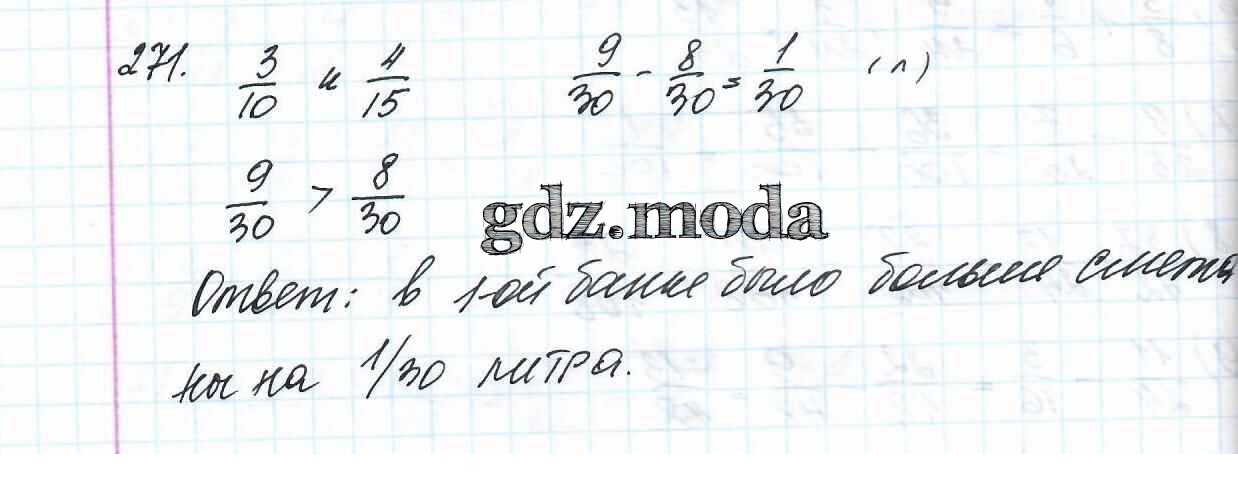 271. 3/10 и 4/15 9/30 - 8/30 = 1/30 (л)
9/30 > 8/30
gdz.moda
Ответ: в 1-ой банке было больше смета
ны на 1/30 литра.